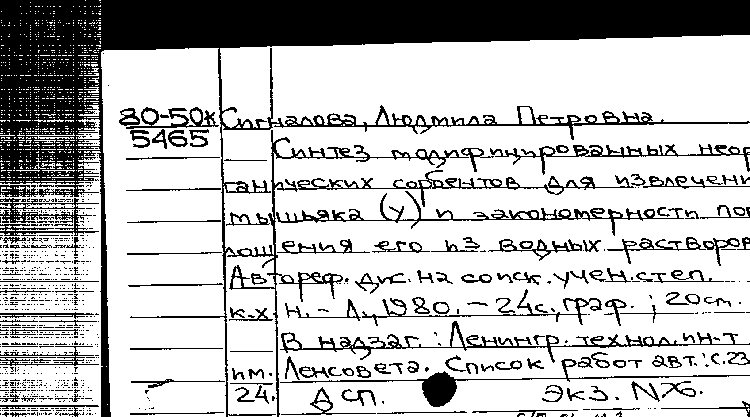 80-50к Сигналова, Людмила Петровна.
5465
Синтез модифицированных неор
ганических сорбентов для извлечени
мышьяка (У) и закономерности пог
лощения его из водных растворов
Автореф. дис. на соиск. учен. степ.
к.х.н. - Л., 1980. - 24с., граф.; 20см.
В надзаг.: Ленингр. технол. ин-т
им. Ленсовета. Список работ авт.: с.23
24. ДСП. Экз. №76.